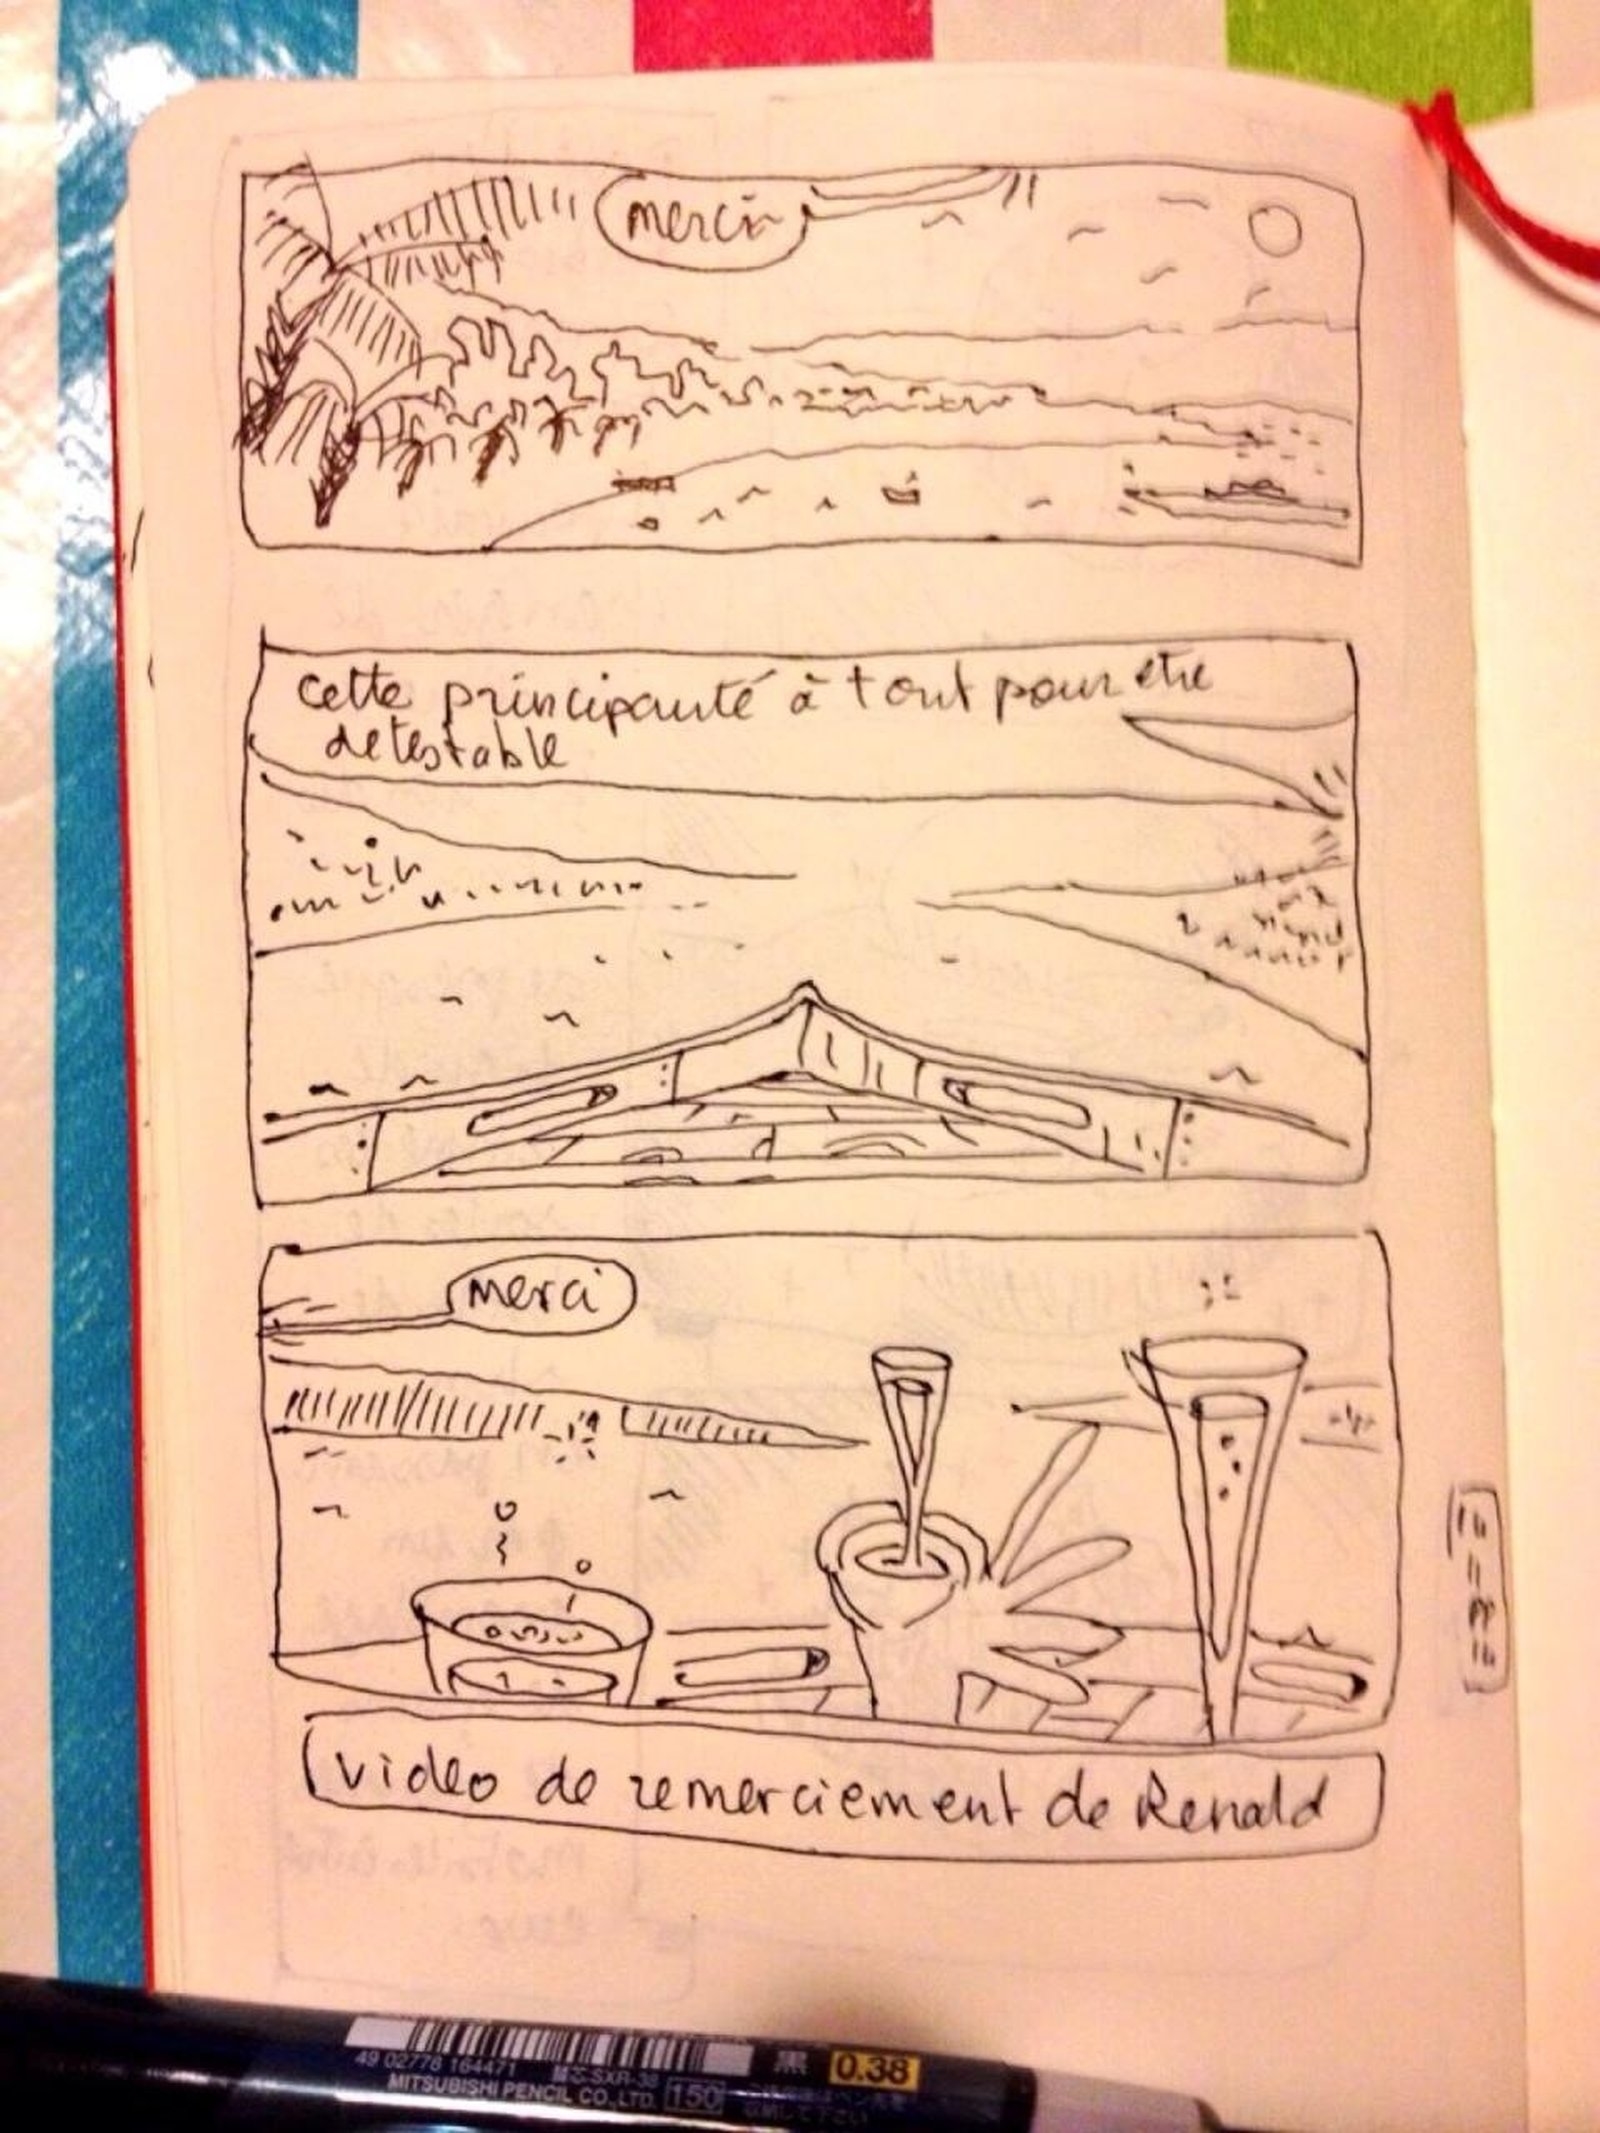 merci
cette principauté à tout pour etre
detestable
merci
video de remerciement de Renald
49 02778 164471
SXR-38
MITSUBISHI PENCIL CO., LTD.
150
黒
0.38